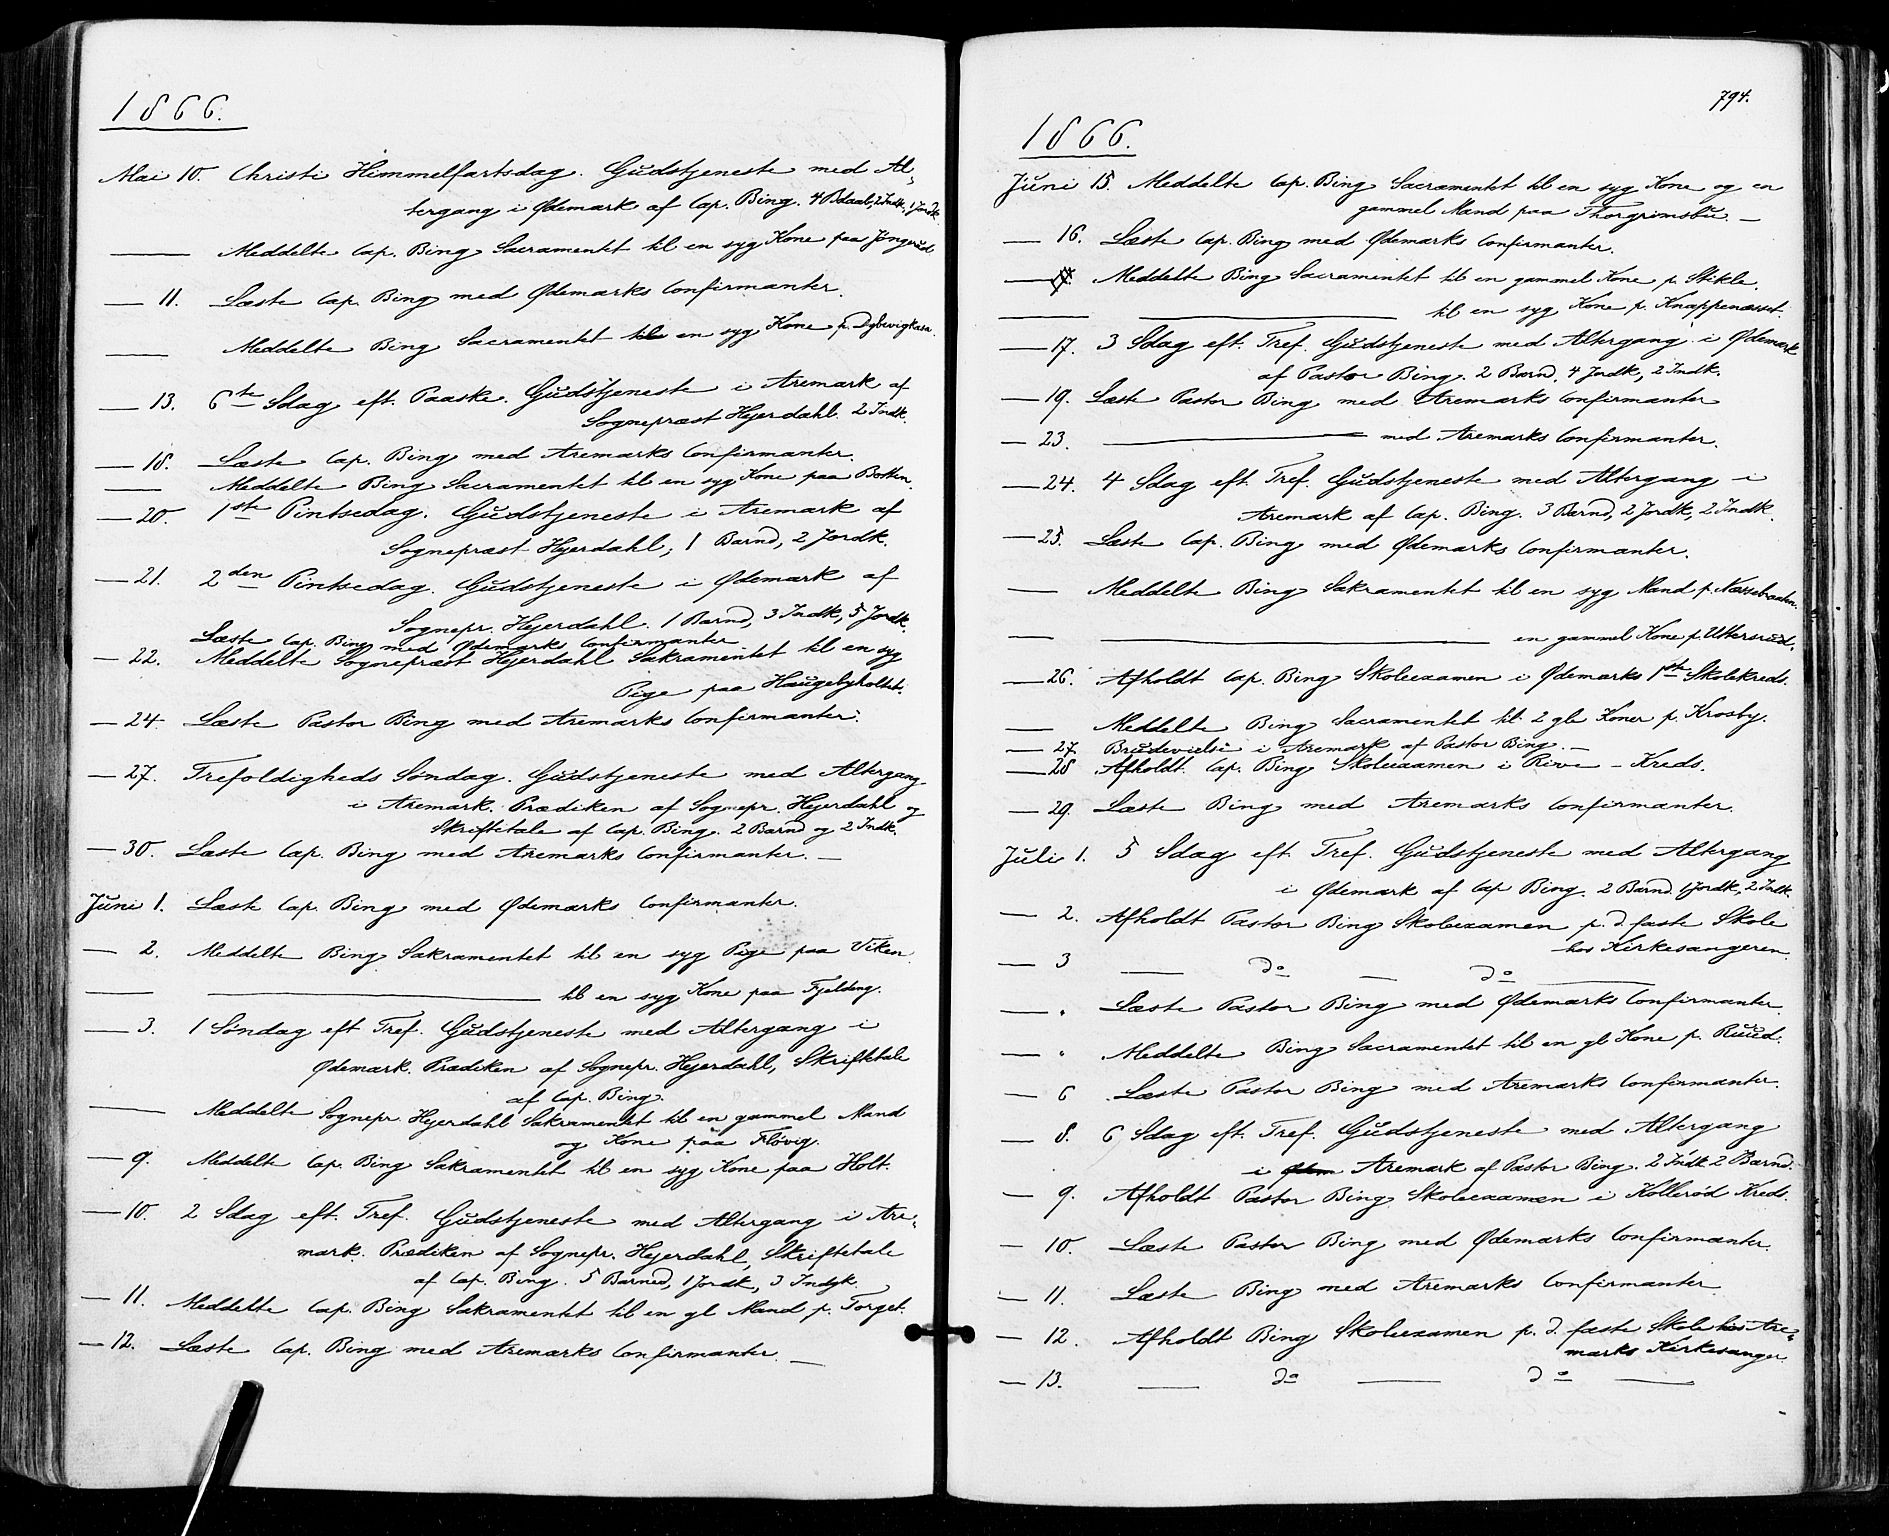 1866.
Mai 10. Christi Himmelfartsdag. Gudstjeneste med Al-
tergang i Ødemark af Cap. Bing. 4 Bdaab, 2 Indk, 1 Jordk
— Meddelte Cap. Bing Sacramentet til en syg Kone paa Jöngerud
— 11. Læste Cap. Bing med Ødemarks Confirmanter.
— Meddelte Bing Sacramentet til en syg Kone p. Dybevigkasa.
— 13. 6te Sdag eft. Paaske. Gudstjeneste i Aremark af
Sognepræst Hejerdahl. 2 Indk.
— 18. Læste Cap. Bing med Aremarks Confirmanter.
— Meddelte Bing Sacramentet til en syg Kone paa Botten.
— 20. 1ste Pintsedag. Gudstjeneste i Aremark af
Sognepræst Hejerdahl, 1 Barnd, 2 Jordk.
— 21. 2den Pintsedag. Gudstjeneste i Ødemark af
Sognepr. Hejerdahl. 1 Barnd, 3 Indk, 5 Jordk.
Læste Cap. Bing med Ødemarks Confirmanter
— 22. Meddelte Sognepræst Hejerdahl Sakramentet til en syg
Pige paa Haugebyholtet.
— 24. Læste Pastor Bing med Aremarks Confirmanter.
— 27. Trefoldigheds Søndag. Gudstjeneste med Altergang
i Aremark. Prædiken af Sognepr. Hejerdahl og
Skriftetale af Cap. Bing. 2 Barnd og 2 Indk.
— 30. Læste Cap. Bing med Aremarks Confirmanter. —
Juni 1. Læste Cap. Bing med Ødemarks Confirmanter.
— 2. Meddelte Bing Sakramentet til en syg Pige paa Viken.
— — til en syg Kone paa Fjelding.
— 3. 1 Søndag eft Tref. Gudstjeneste med Altergang i
Ødemark. Prædiken af Sognepr. Hejerdahl, Skriftetale
af Cap. Bing.
— Meddelte Sognepr. Hejerdahl Sakramentet til en gammel Mand
og Kone paa Fløvig.
— 9. Meddelte Cap. Bing Sakramentet til en syg Kone paa Holt.
— 10. 2 Sdag eft. Tref. Gudstjeneste med Altergang i Are-
mark. Prædiken af Sognepr. Hejerdahl, Skriftetale
af Cap. Bing. 5 Barned, 1 Jordk, 3 Indgk.
— 11. Meddelte Cap. Bing Sakramentet til en gl Mand p. Torget.
— 12. Læste Cap. Bing med Aremarks Confirmanter. —
794.
1866.
Juni 15. Meddelte Cap. Bing Sacramentet til en syg Kone og en
gammel Mand paa Thorgrimsbu. —
— 16. Læste Cap. Bing med Ødemarks Confirmanter.
— Meddelte Bing Sacramentet til en gammel Kone p. Stikle.
— — til en syg Kone p. Knappenæsset.
— 17. 3 Sdag eft. Tref. Gudstjeneste med Altergang i Ødemark
af Pastor Bing. 2 Barnd, 4 Jordk, 2 Indk.
— 19. Læste Pastor Bing med Aremarks Confirmanter
— 23. — med Aremarks Confirmanter.
— 24. 4 Sdag eft. Tref. Gudstjeneste med Altergang i
Aremark af Cap. Bing. 3 Barnd, 2 Jordk, 2 Indk.
— 25. Læste Cap. Bing med Ødemarks Confirmanter.
— Meddelte Bing Sakramentet til en syg Mand p. Næssebraaten.
— — en gammel Kone p. Uttersrud.
— 26. Afholdt Cap. Bing Skoleexamen i Ødemarks 1ste Skolekreds.
— Meddelte Bing Sacramentet til 2 gle Koner p. Krosby.
— 27. Brudevielse i Aremark af Pastor Bing. —
— 28 Afholdt Cap. Bing Skoleexamen i Rive - Kreds.
— 29. Læste Bing med Aremarks Confirmanter.
Juli 1. 5 Sdag eft Tref. Gudstjeneste med Altergang
i Ødemark af Cap Bing. 2 Barnd 1 Jordk, 2 Indk.
— 2. Afholdt Pastor Bing Skoleexamen p. d. faste Skole
hos Kirkesangeren.
— 3 — do — do —
— " Læste Pastor Bing med Ødemarks Confirmanter
— " Meddelte Bing Sacramentet til en gl Kone p. Ruud.
— 6 Læste Pastor Bing med Aremarks Confirmanter.
— 8. 6 Sdag eft. Tref. Gudstjeneste med Altergang
i Aremark af Pastor Bing. 2 Indk 2 Barnd.
— 9. Afholdt Pastor Bing Skoleexamen i Kollerød Kreds.
— 10. Læste Pastor Bing med Ødemarks Confirmanter.
— 11. Læste Bing med Aremarks Confirmanter
— 12. Afholdt Bing Skoleexamen p. d. faste Skole hos Are-
marks Kirkesanger
— 13. — do — do —